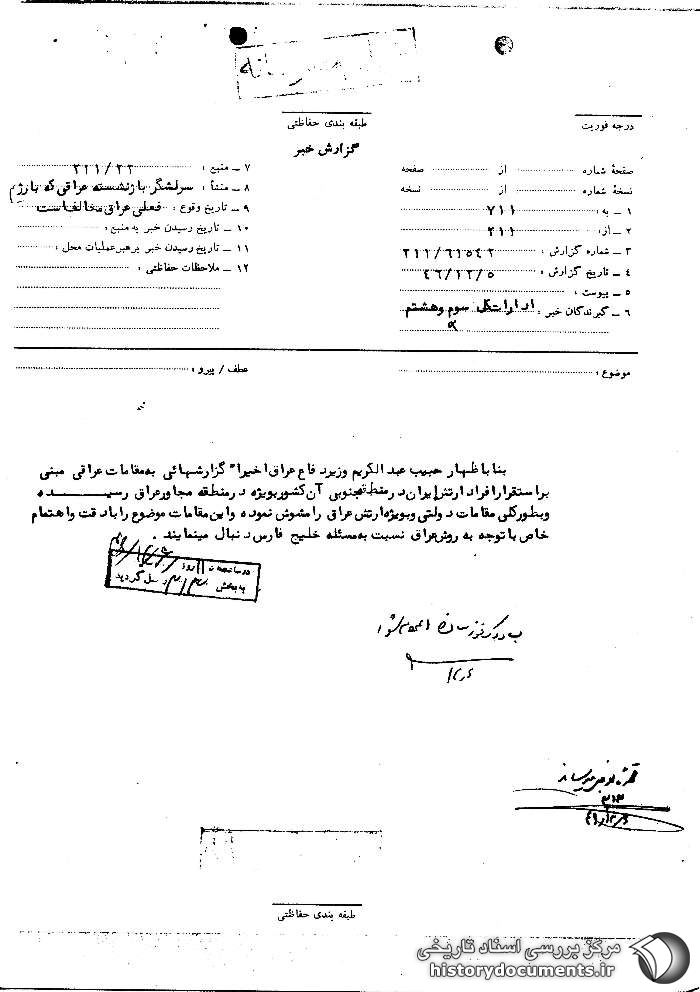 طبقه بندی حفاظتی
درجه فوریت
گزارش خبر
صفحهٔ شماره از صفحه
نسخهٔ شماره از نسخه
۱ ــ به : ۷۱۱
۲ ــ از : ۲۱۱
۳ ــ شماره گزارش : ۲۱۱/۶۱۵۴۲
۴ ــ تاریخ گزارش : ۴۶/۱۲/۵
۵ ــ پیوست :
۶ ــ گیرندگان خبر : ادارات کل سوم وهشتم
۷ ــ منبع : ۲۱۱/۲۲
۸ ــ منشأ : سرلشگر بازنشسته عراقی که بارژیم
۹ ــ تاریخ وقوع : فعلی عراق مخالف است
۱۰ ــ تاریخ رسیدن خبر به منبع :
۱۱ ــ تاریخ رسیدن خبر برهبر عملیات محل :
۱۲ ــ ملاحظات حفاظتی :
موضوع :
عطف / پیرو :
بنا باظهار حبیب عبدالکریم وزیردفاع عراق اخیرا" گزارشهائی به مقامات عراقی مبنی
براستقرارافراد ارتش ایران درمنطقه جنوبی آن کشوربویژه درمنطقه مجاورعراق رسیده
وبطورکلی مقامات دولتی وبویژه ارتش عراق رامشوش نموده واین مقامات موضوع راباد قت واهتمام
خاص باتوجه به روش عراق نسبت به مسئله خلیج فارس دنبال مینمایند .
در ساعت روز
به بخش ارسال گردید
۳۱۳
طبقه بندی حفاظتی
مرکز بررسی اسناد تاریخی
historydocuments.ir